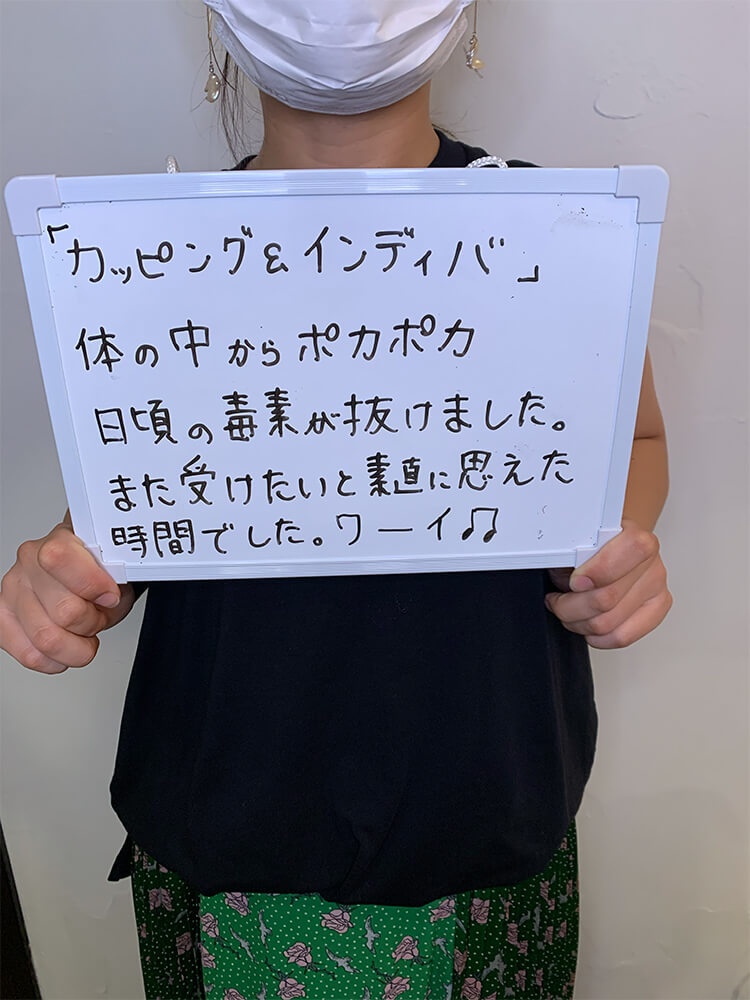 「カッピング&インディバ」
体の中からポカポカ
日頃の毒素が抜けました。
また受けたいと素直に思えた
時間でした。ワーイ♫